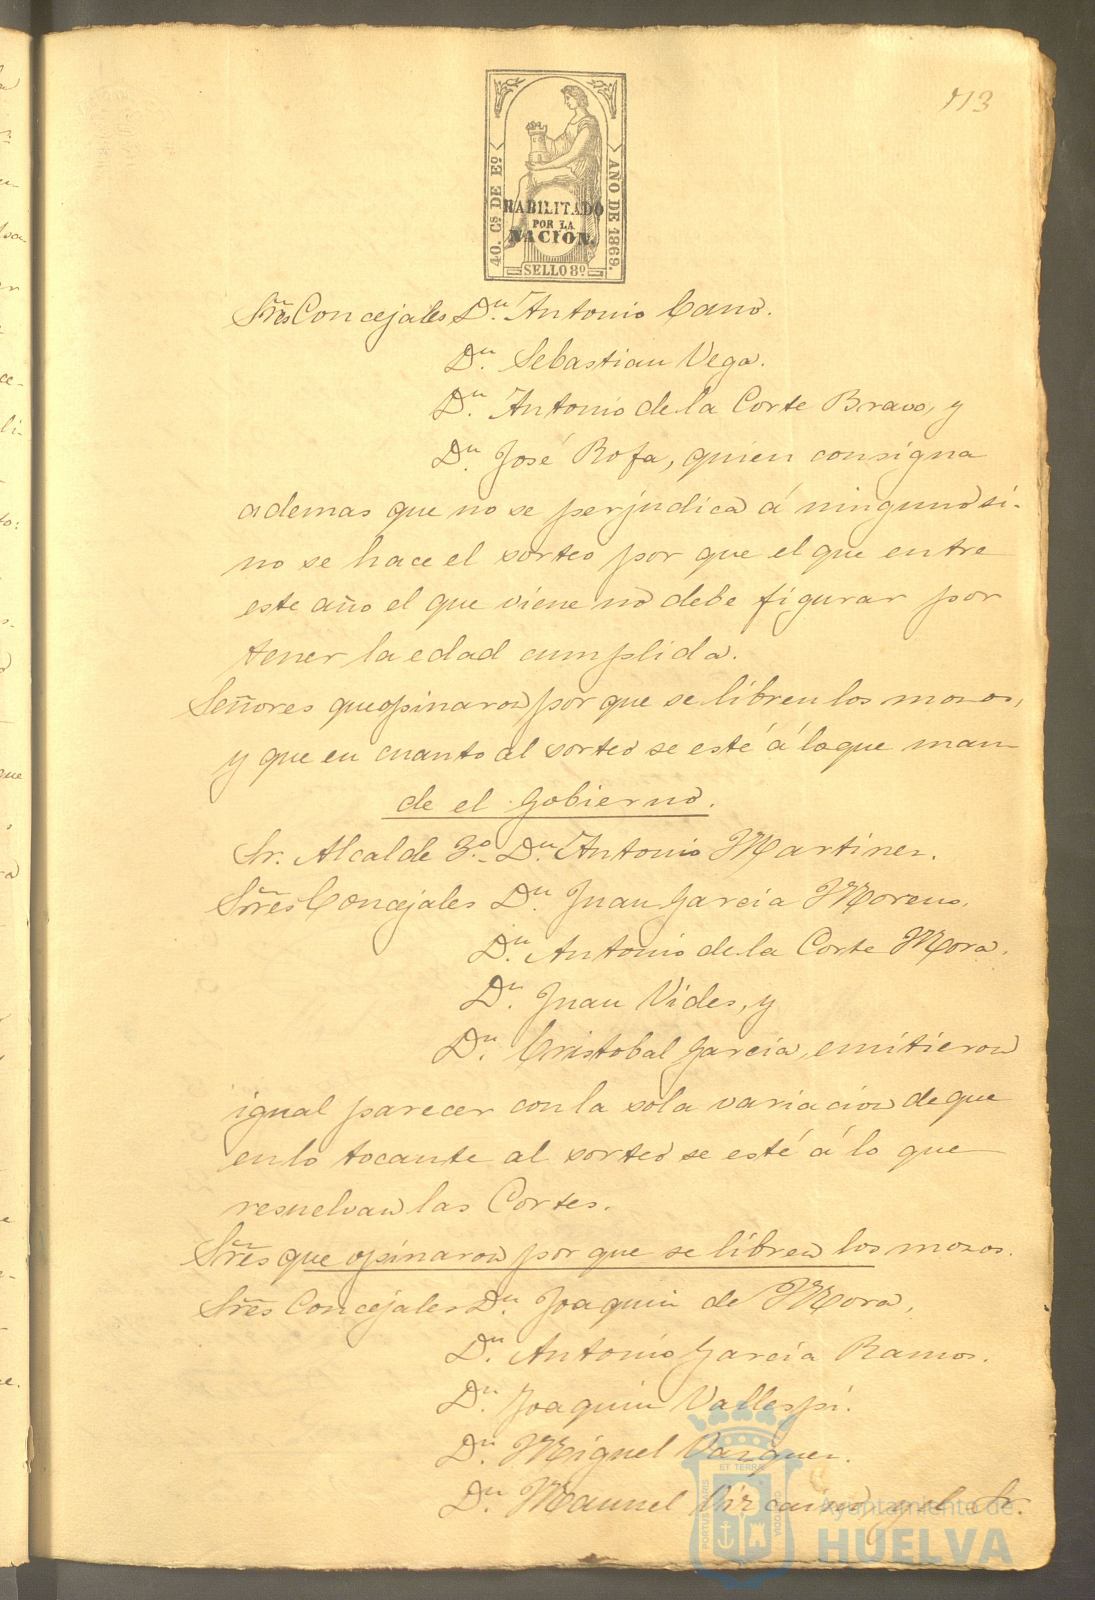 113
40. Cs DE Eo
AÑO DE 1869.
HABILITADO
POR LA
NACION.
SELLO 8º
Sres Concejales Dn. Antonio Cano.
Dn. Sebastian Vega.
Dn. Antonio de la Corte Bravo, y
Dn. José Rofa, quien consigna
ademas que no se perjudica á ninguno si-
no se hace el sorteo por que el que entre
este año el que viene no debe figurar por
tener la edad cumplida.
Señores que opinaron por que se libren los mozos,
y que en cuanto al sorteo se esté á lo que man-
de el Gobierno.
Sr. Alcalde 3º. Dn. Antonio Martinez.
Sres Concejales Dn. Juan Garcia Moreno.
Dn. Antonio de la Corte Mora.
Dn. Juan Vides, y
Dn. Cristobal Garcia, emitieron
igual parecer con la sola variacion de que
en lo tocante al sorteo se esté á lo que
resuelvan las Cortes.
Sres que opinaron por que se libren los mozos.
Sres Concejales Dn. Joaquin de Mora,
Dn. Antonio Garcia Ramos.
Dn. Joaquin Vallespi.
Dn. Miguel Vazquez.
Dn. Manuel Vizcaino y el Sr.
PORTUS MARIS
ET TERRÆ
CUSTODIA
Ayuntamiento de
HUELVA